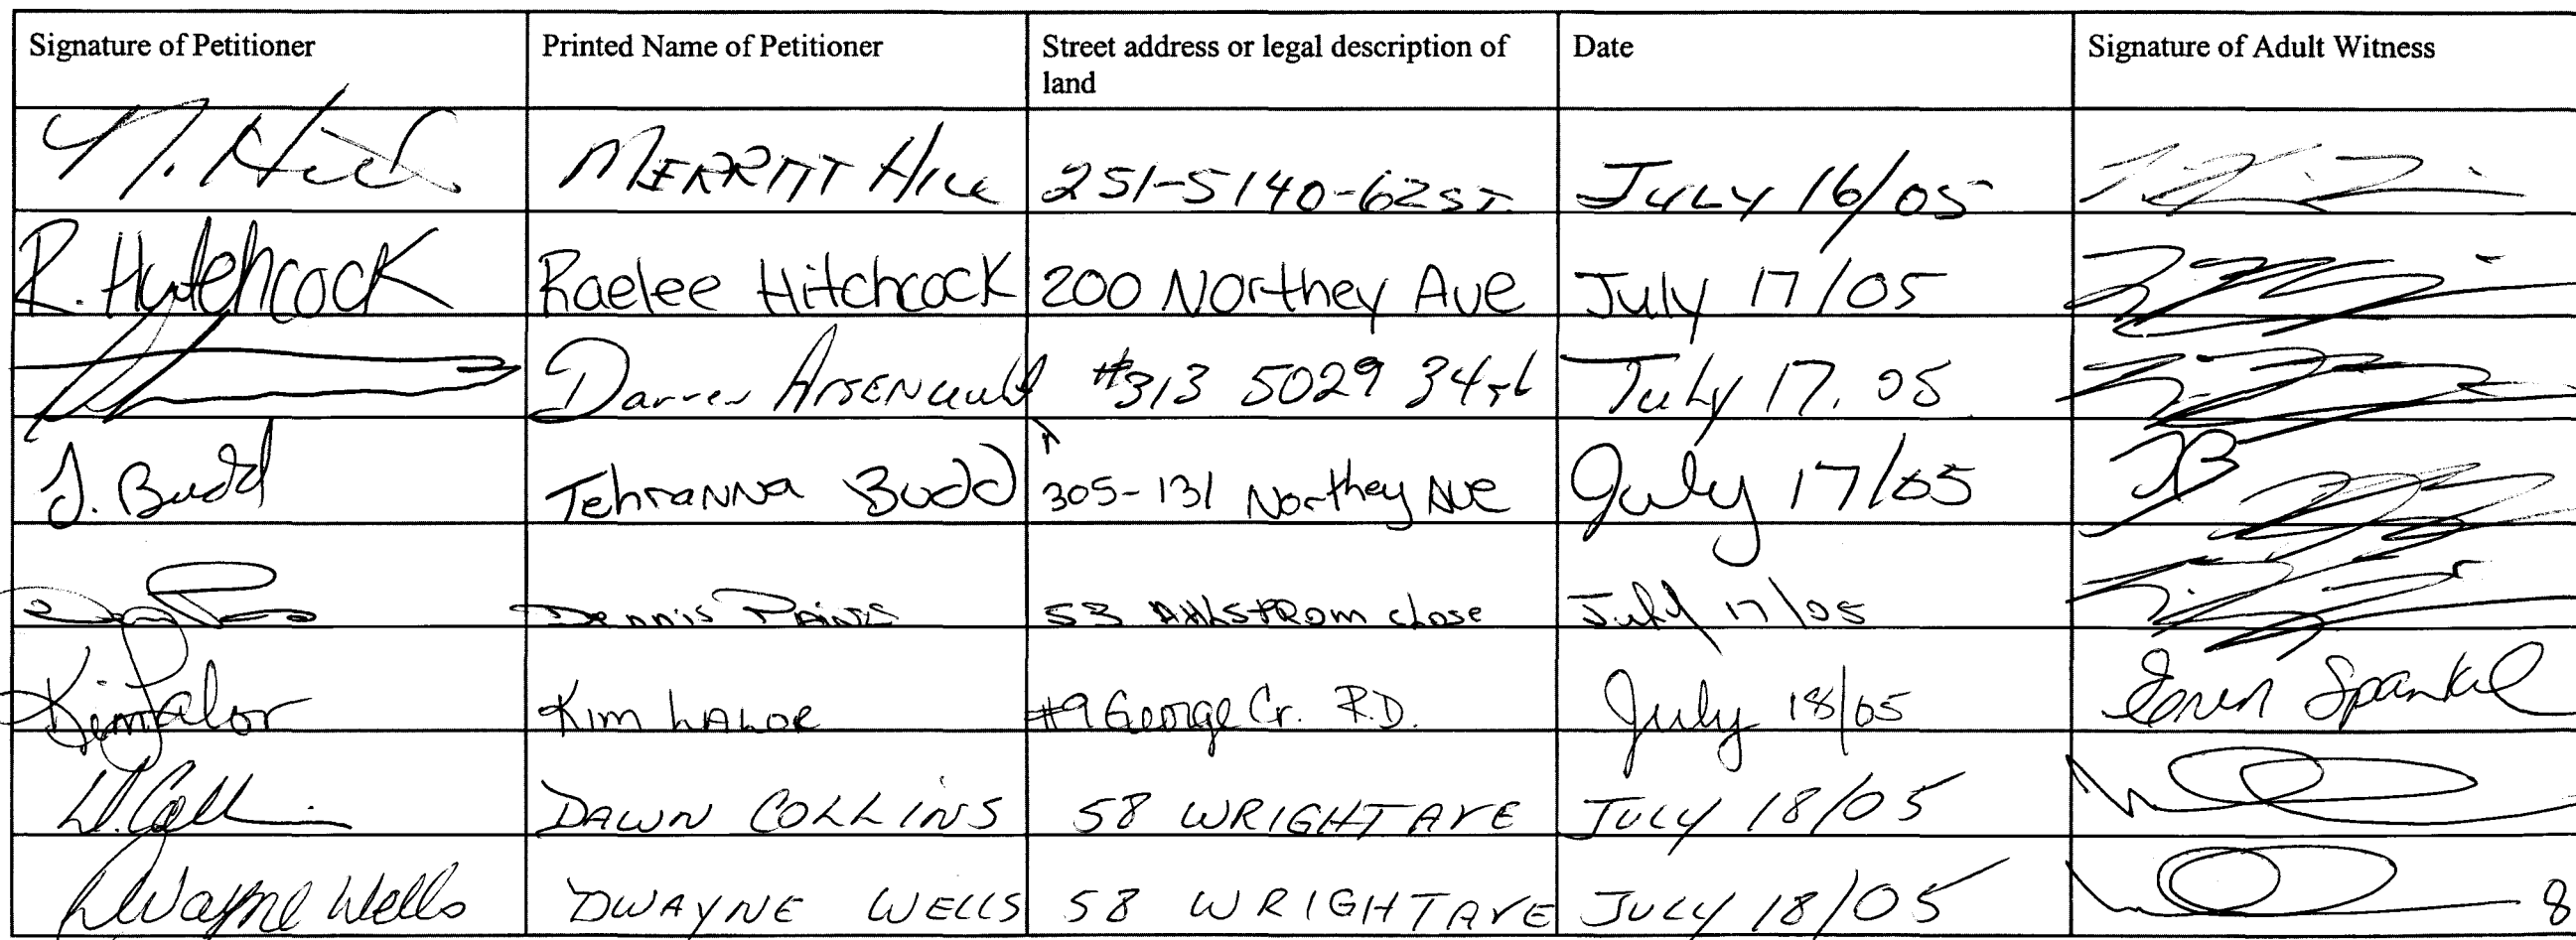 Signature of Petitioner Printed Name of Petitioner Street address or legal description of land Date Signature of Adult Witness
M. Hill MERRITT HILL 251-5140-62 ST. JULY 16/05
R. Hitchcock Raelee Hitchcock 200 Northey Ave July 17/05
Darren ARSENAULT #313 5029 34st July 17. 05
J. Budd Tehranna Budd 305-131 Northey Ave July 17/05 JB
Dennis PAINE 53 AHLSTROM close July 17/05
Kim Lalor Kim LALOR #9 George Cr. R.D. July 18/05 Spankel
D. Collins DAWN COLLINS 58 WRIGHT AVE JULY 18/05
Dwayne Wells DWAYNE WELLS 58 WRIGHT AVE JULY 18/05 8